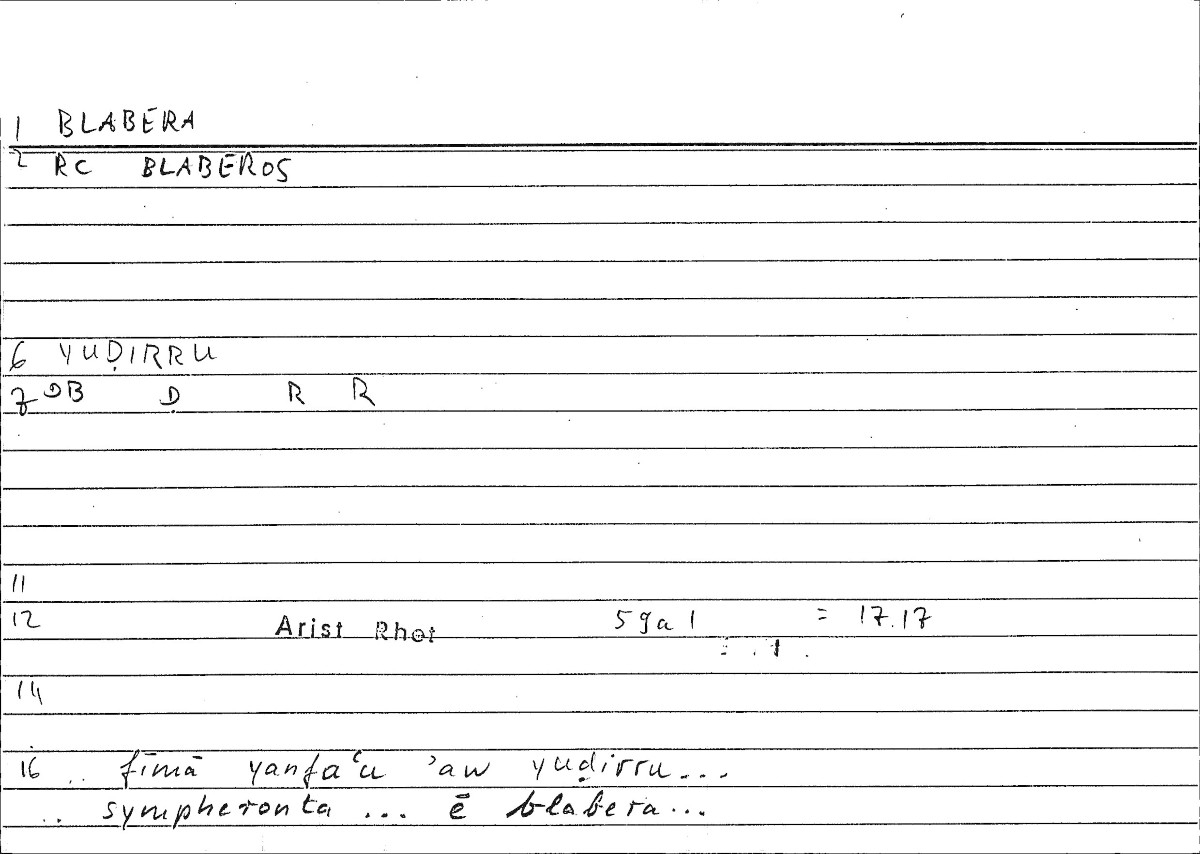 1 BLABERA
2 RC BLABEROS
6 YUḌIRRU
7 DB Ḍ R R
11
12 Arist Rhet 59a1 = 17.17
14
16 .. fīmā yanfaʿu ʾaw yuḍirru...
.. sympheronta ... ē blabera...